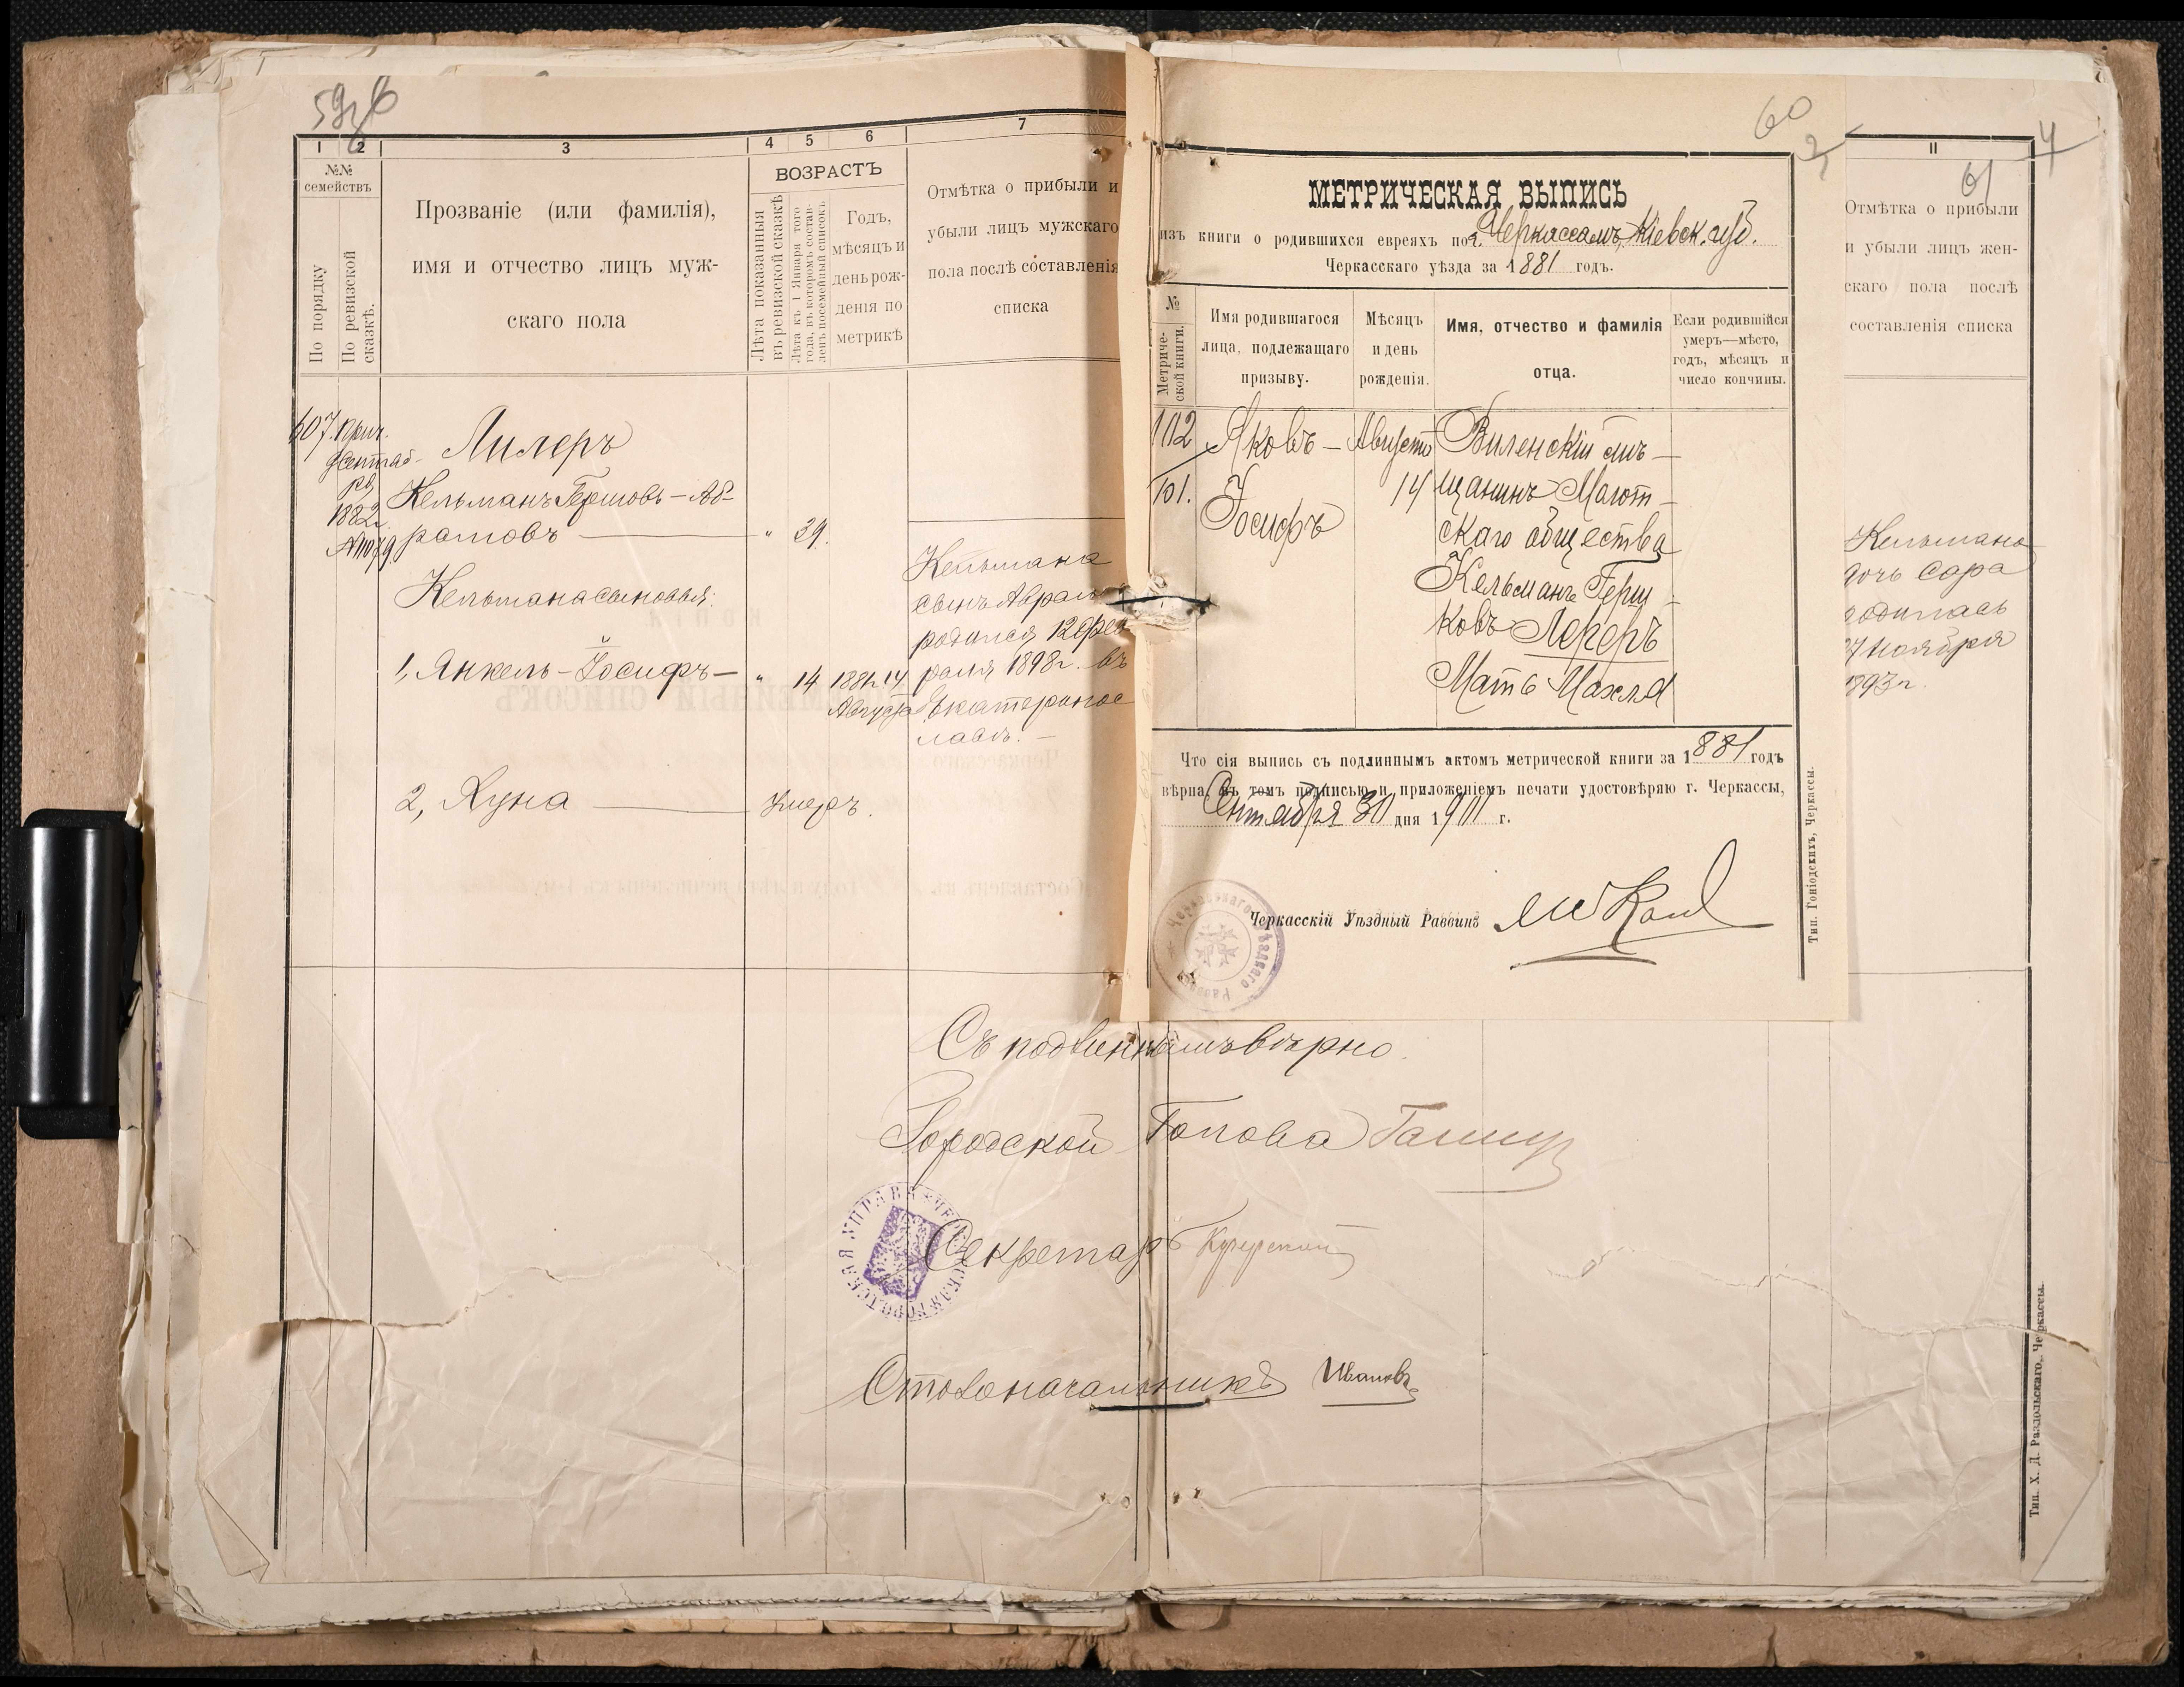 1
2
3
4
5
6
7
№№
семействъ
По порядку
По ревизской
сказкѣ.
Прозваніе (или фамилія),
имя и отчество лицъ муж-
скаго пола
ВОЗРАСТЪ
Лѣта показанныя
въ ревизской сказкѣ
Лѣта къ 1 Января того
года, въ которомъ состав-
ленъ посемейный списокъ.
Годъ,
мѣсяцъ и
день рож-
денія по
метрикѣ
Отмѣтка о прибыли и
убыли лицъ мужскаго
пола послѣ составленія
списка
607.
1882
Лилеръ
Кельманъ Гершовъ-Аб-
рамовъ
" 39.
Кельмана сыновья:
1, Янкель-Іосифъ-
" 14 1881 г. 14
Августа
2, Хуна
Умеръ.
Кельмана
сынъ Абрам
родился 12 фев
раля 1898 г. въ
Екатеринос
лавѣ. -
60
МЕТРИЧЕСКАЯ ВЫПИСЬ
изъ книги о родившихся евреяхъ по г. Черкассамъ, Кіевск. губ.
Черкасскаго уѣзда за 1881 годъ.
№
Метриче-
ской книги.
Имя родившагося
лица, подлежащаго
призыву.
Мѣсяцъ
и день
рожденія.
Имя, отчество и фамилія
отца.
Если родившійся
умеръ—мѣсто,
годъ, мѣсяцъ и
число кончины.
102
101.
Яковъ-
Іосифъ
Августъ
14
Виленскій мѣ-
щанинъ
скаго общества
Кельманъ Герш-
ковъ Лерер
Мать Махля
Что сія выпись съ подлиннымъ актомъ метрической книги за 1881 годъ
вѣрна, въ томъ подписью и приложеніемъ печати удостовѣряю г. Черкассы,
Сентября 30 дня 1901 г.
Черкасскій Уѣздный Раввинъ
Тип. Гоніодскихъ, Черкассы.
11
61
Отмѣтка о прибыли
и убыли лицъ жен-
скаго пола послѣ
составленія списка
Кельмана
дочь Сара
родилась
27 Ноября
1893 г.
Съ подлиннымъ вѣрно.
Городской Голова
Секретарь
Столоначальникъ Ивановъ
Тип. Х. Д. Раздольскаго, Черкассы.